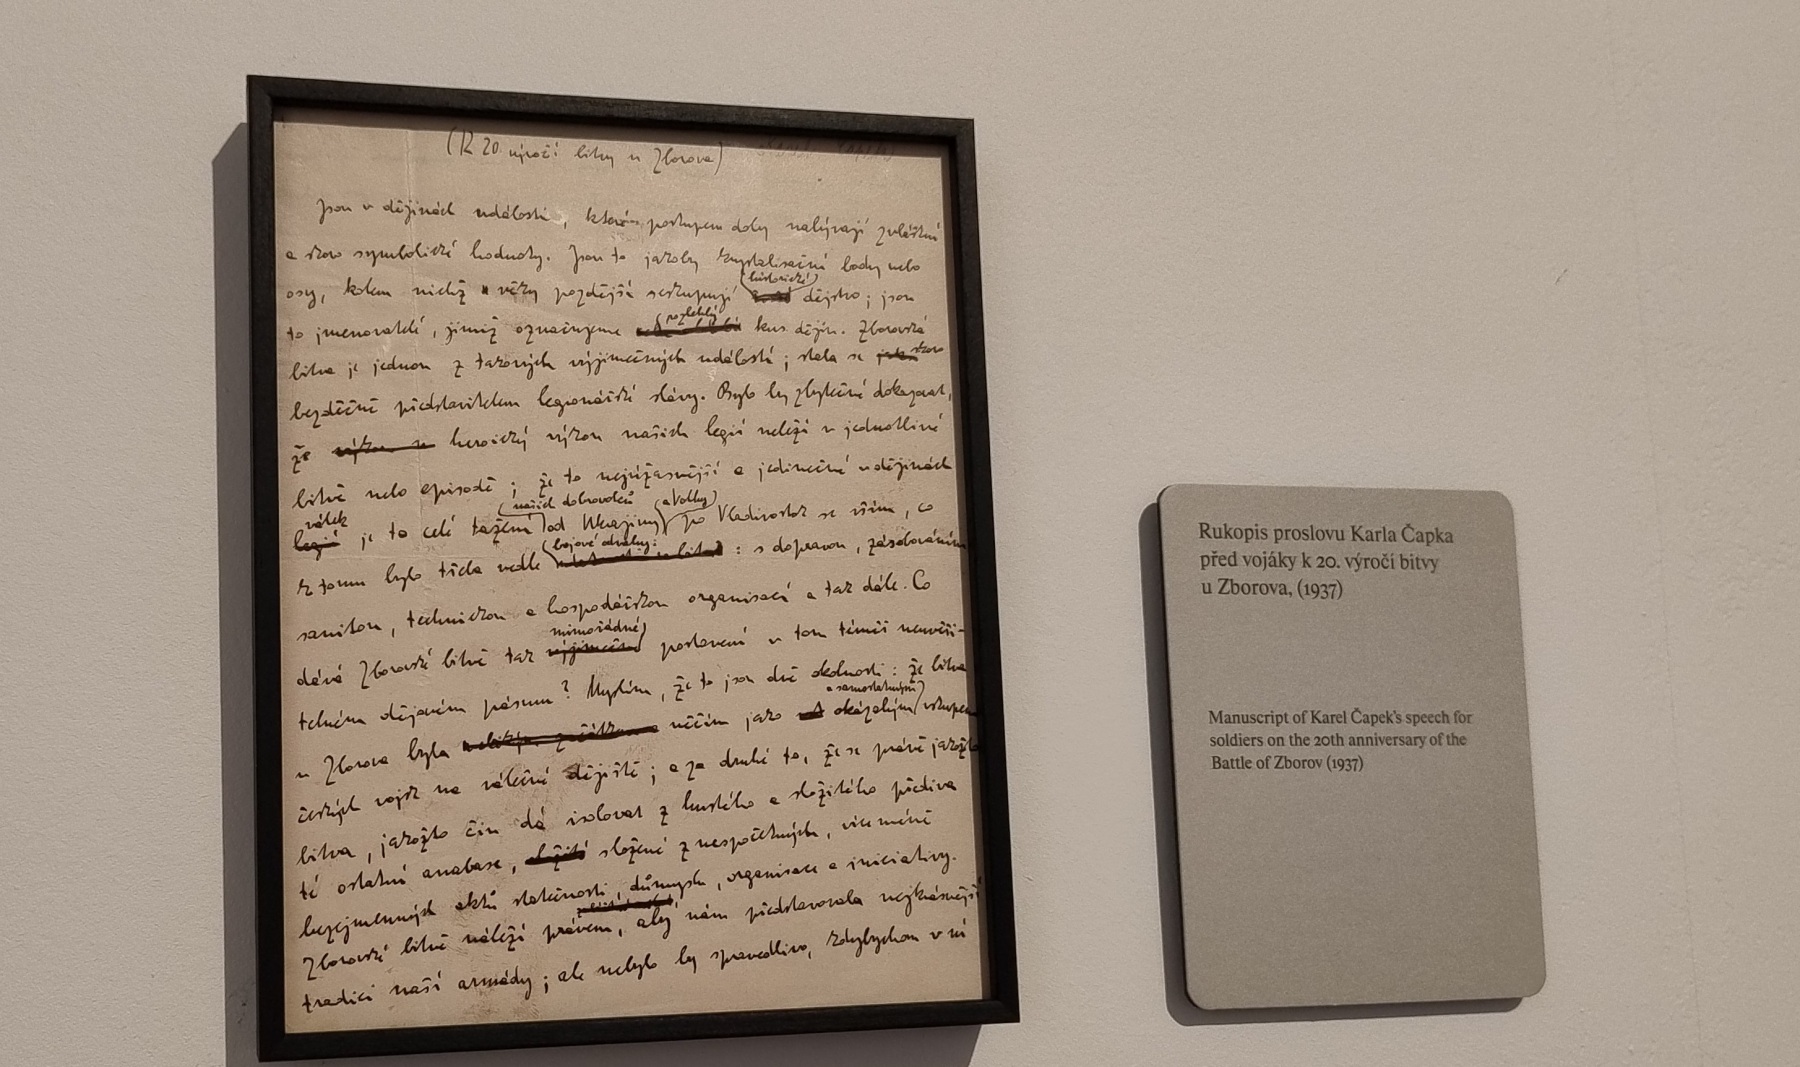 (K 20. výročí bitvy u Zborova)
Jsou v dějinách události, které postupem doby nabývají zvláštní
a skoro symbolické hodnoty. Jsou to jakoby krystalisační body nebo
osy, kolem nichž se věky později seskupují historické dějstvo; jsou
to jmenovatelé, jimiž označujeme rozlehlý kus dějin. Zborovská
bitva je jednou z takových výjimečných událostí; stala se skoro
bezděčně představitelem legionářské slávy. Bylo by zbytečné dokazovat,
že heroický výkon našich legií neleží v jednotlivé
bitvě nebo episodě; že to nejúžasnější a jedinečné v dějinách
válek je to celé tažení našich dobrovolců od Ukrajiny a Volhy po Vladivostok se vším, co
k tomu bylo třeba vedle bojové odvahy: s dopravou, zásobováním,
sanitou, technickou a hospodářskou organisací a tak dále. Co
dává Zborovské bitvě tak mimořádné postavení v tom téměř neuvěři-
telném dějovém pásmu? Myslím, že to jsou dvě okolnosti: že bitva
u Zborova byla něčím jako okázalým a samostatným vstupem
českých vojsk na válečné dějiště; a za druhé to, že se právě jakožto
bitva, jakožto čin dá isolovat z hustého a složitého přediva
té ostatní anabase, složené z nespočetných, víceméně
bezejmenných aktů statečnosti, důmyslu, organisace a iniciativy.
Zborovské bitvě náleží právem, aby nám představovala nejkrásnější
tradici naší armády; ale nebylo by spravedlivo, kdybychom v ní
Rukopis proslovu Karla Čapka
před vojáky k 20. výročí bitvy
u Zborova, (1937)
Manuscript of Karel Čapek's speech for
soldiers on the 20th anniversary of the
Battle of Zborov (1937)